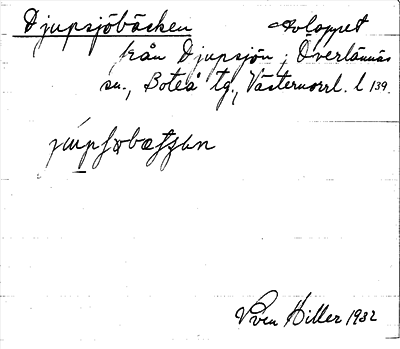 Djupsjöbäcken avloppet
från Djupsjön, Överlännäs
sn., Boteå tg., Västernorrl. l 139.
Sven Hiller 1932